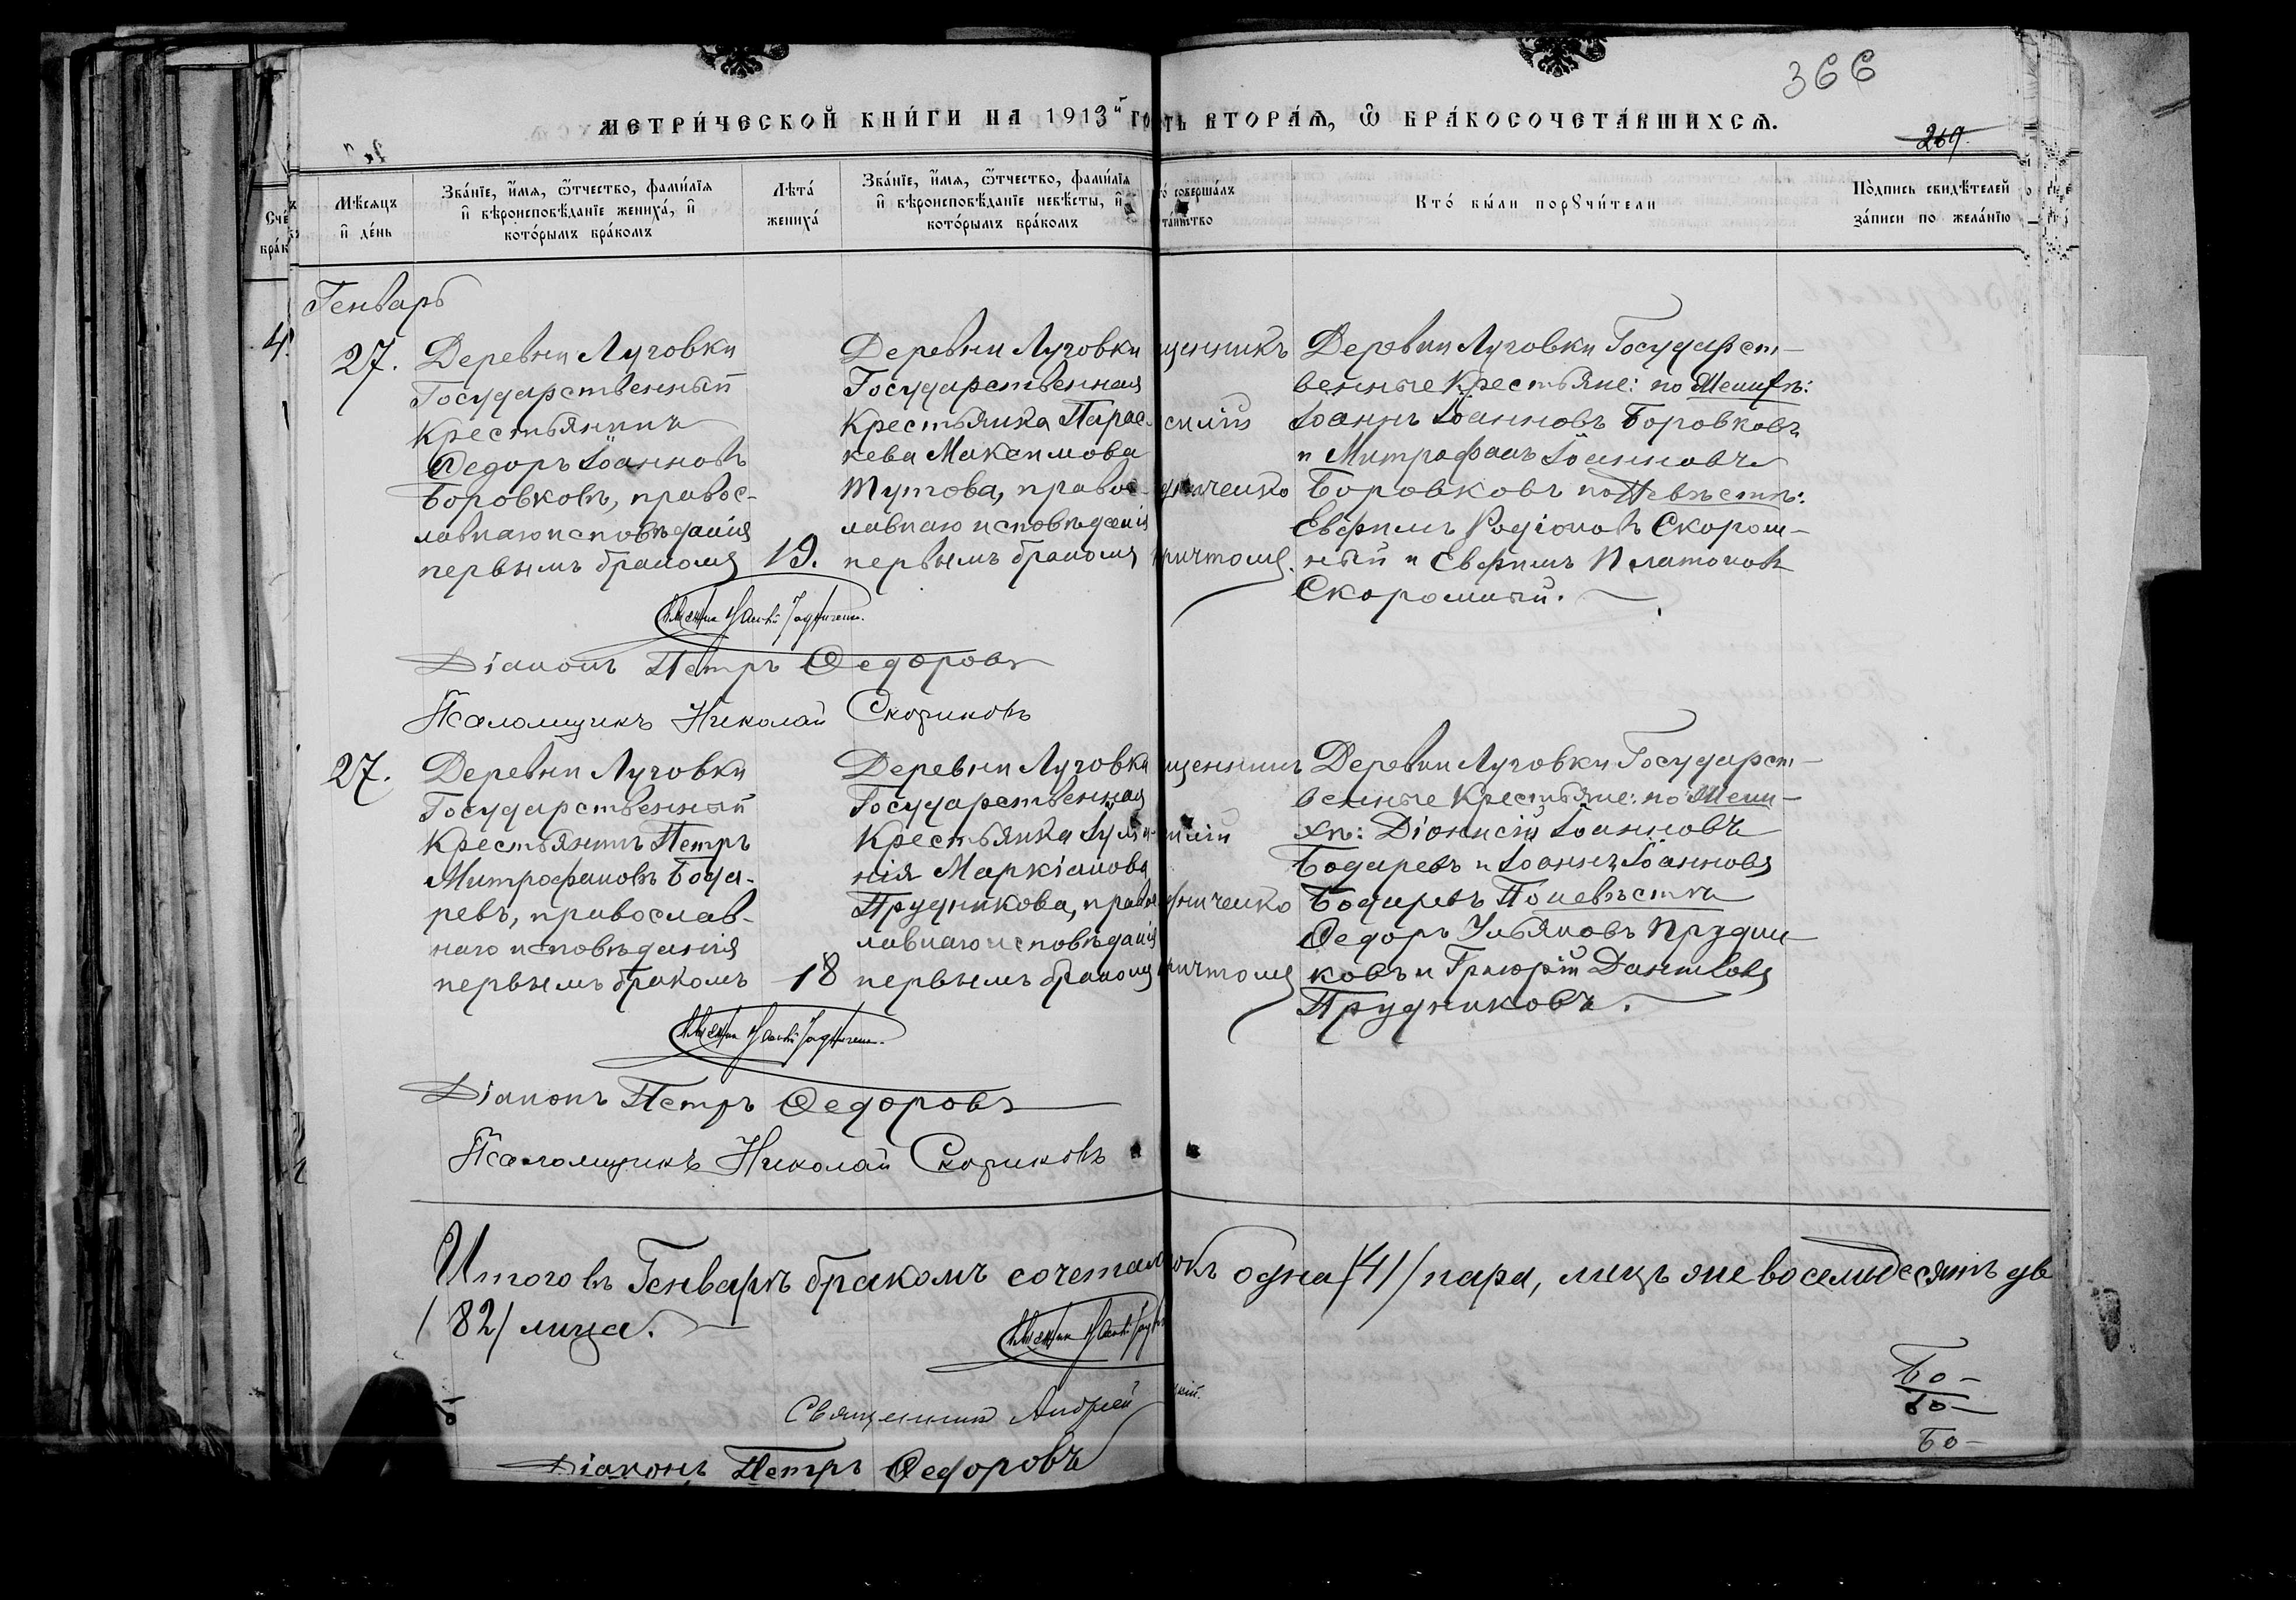 366
МЕТРИ́ЧЕСКОЙ КНИ́ГИ НА 1913й ГО ТЬ ВТОРА́Ѧ, Ѿ БРА́КОСОЧЕТА́ВШИХСѦ.
269.
Мѣ́сѧцъ и҆ де́нь
Зва́нїе, и҆́мѧ, ѻ҆́тчество, фами́лїѧ и҆ вѣроисповѣ́данїе жениха́, и҆ кото́рымъ бра́комъ
Лѣта̀ жениха̀
Зва́нїе, и҆́мѧ, ѻ҆́тчество, фами́лїѧ и҆ вѣроисповѣ́данїе невѣ́сты, и҆ кото́рымъ бра́комъ
совершалъ та́инство
Кто́ бы́ли порꙋчи́тели
По́дпись свидѣ́телей за́писи по жела́нїю
Генварь
4.
27.
Деревни Луговки
Государственный
Крестьянинъ
Ѳедоръ Іоанновъ
Боровковъ, правос-
лавнаго исповѣданія
первымъ бракомъ
19.
Деревни Луговки
Государственная
Крестьянка Парас-
кева Максимова
Тутова, правос-
лавнаго исповѣданія
первымъ бракомъ
щенникъ
силій
дниченко
причтомъ.
Деревни Луговки Государст-
венные Крестьяне: по Женихѣ:
Іоаннъ Іоанновъ Боровковъ
и Митрофанъ Іоанновъ
Боровковъ по Невѣстѣ:
Евфимъ Родіоновъ Скором-
ный и Евфимъ Платоновъ
Скоромный.
Діаконъ Петръ Ѳедоровъ
Псаломщикъ Николай Скориковъ
27.
Деревни Луговки
Государственный
Крестьянинъ Петръ
Митрофановъ Бода-
ревъ, православ-
наго исповѣданія
первымъ бракомъ
18
Деревни Луговки
Государственная
Крестьянка Іулiа-
нія Маркіанова
Прудникова, правос-
лавнаго исповѣданія
первымъ бракомъ
щенникъ
силій
дниченко
причтомъ
Деревни Луговки Государст-
венные Крестьяне: по Жени-
хѣ: Діонисій Іоанновъ
Бодаревъ и Іоаннъ Іоанновъ
Бодаревъ По невѣстѣ
Ѳедоръ Ульяновъ Прудни-
ковъ и Григорій Даниловъ
Прудниковъ.
Діаконъ Петръ Ѳедоровъ
Псаломщикъ Николай Скориковъ
Итого въ Генварѣ бракомъ сочеталось одна /41/ пара, лицъ же восемьдесятъ два
/82/ лица.
Священникъ Андрей
Діаконъ Петръ Ѳедоровъ
Бо-
Бо-
Бо-